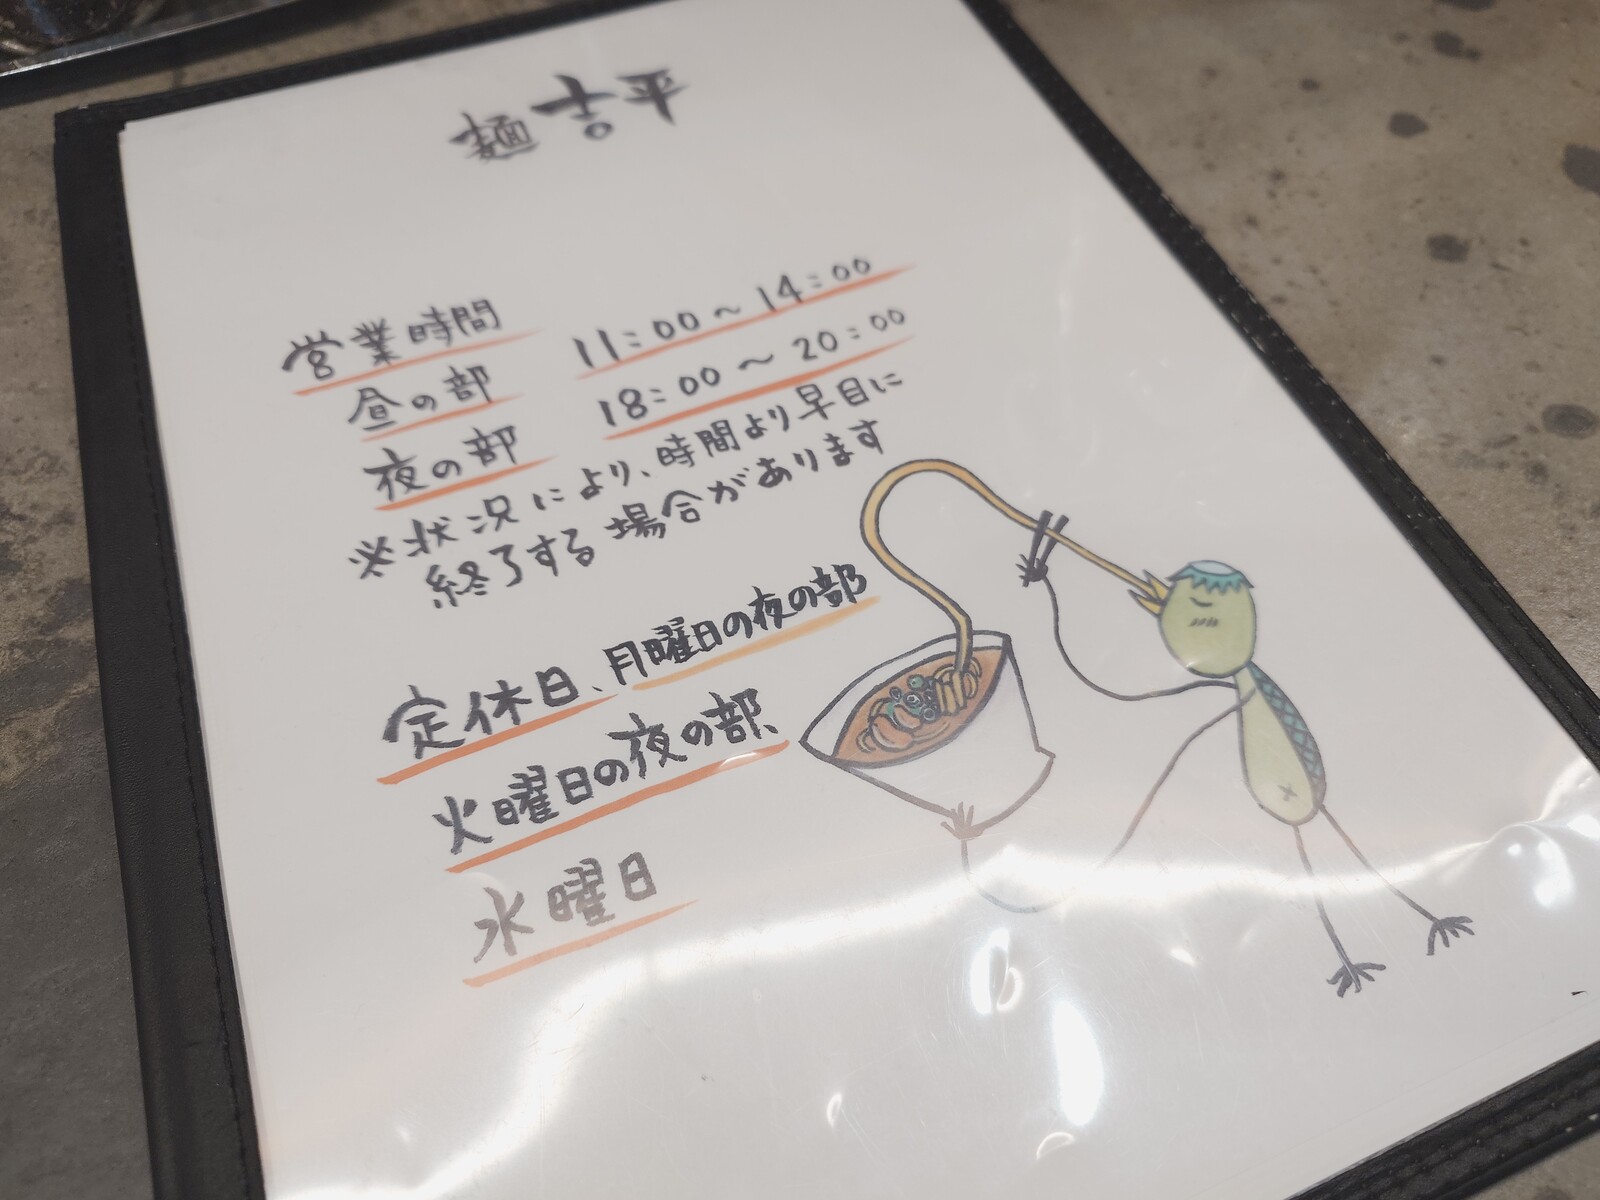 麺 吉平
営業時間
昼の部 11:00～14:00
夜の部 18:00～20:00
※状況により、時間より早目に
終了する場合があります
定休日、月曜日の夜の部
火曜日の夜の部、
水曜日